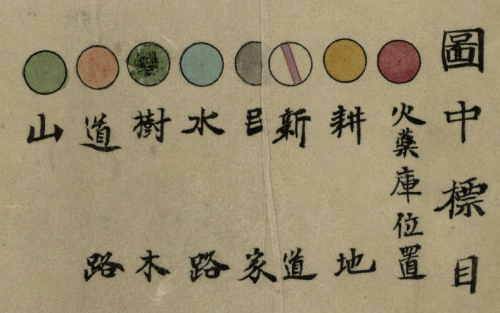 圖中標目
火藥庫位置
耕地
新道
民家
水路
樹木
道路
山